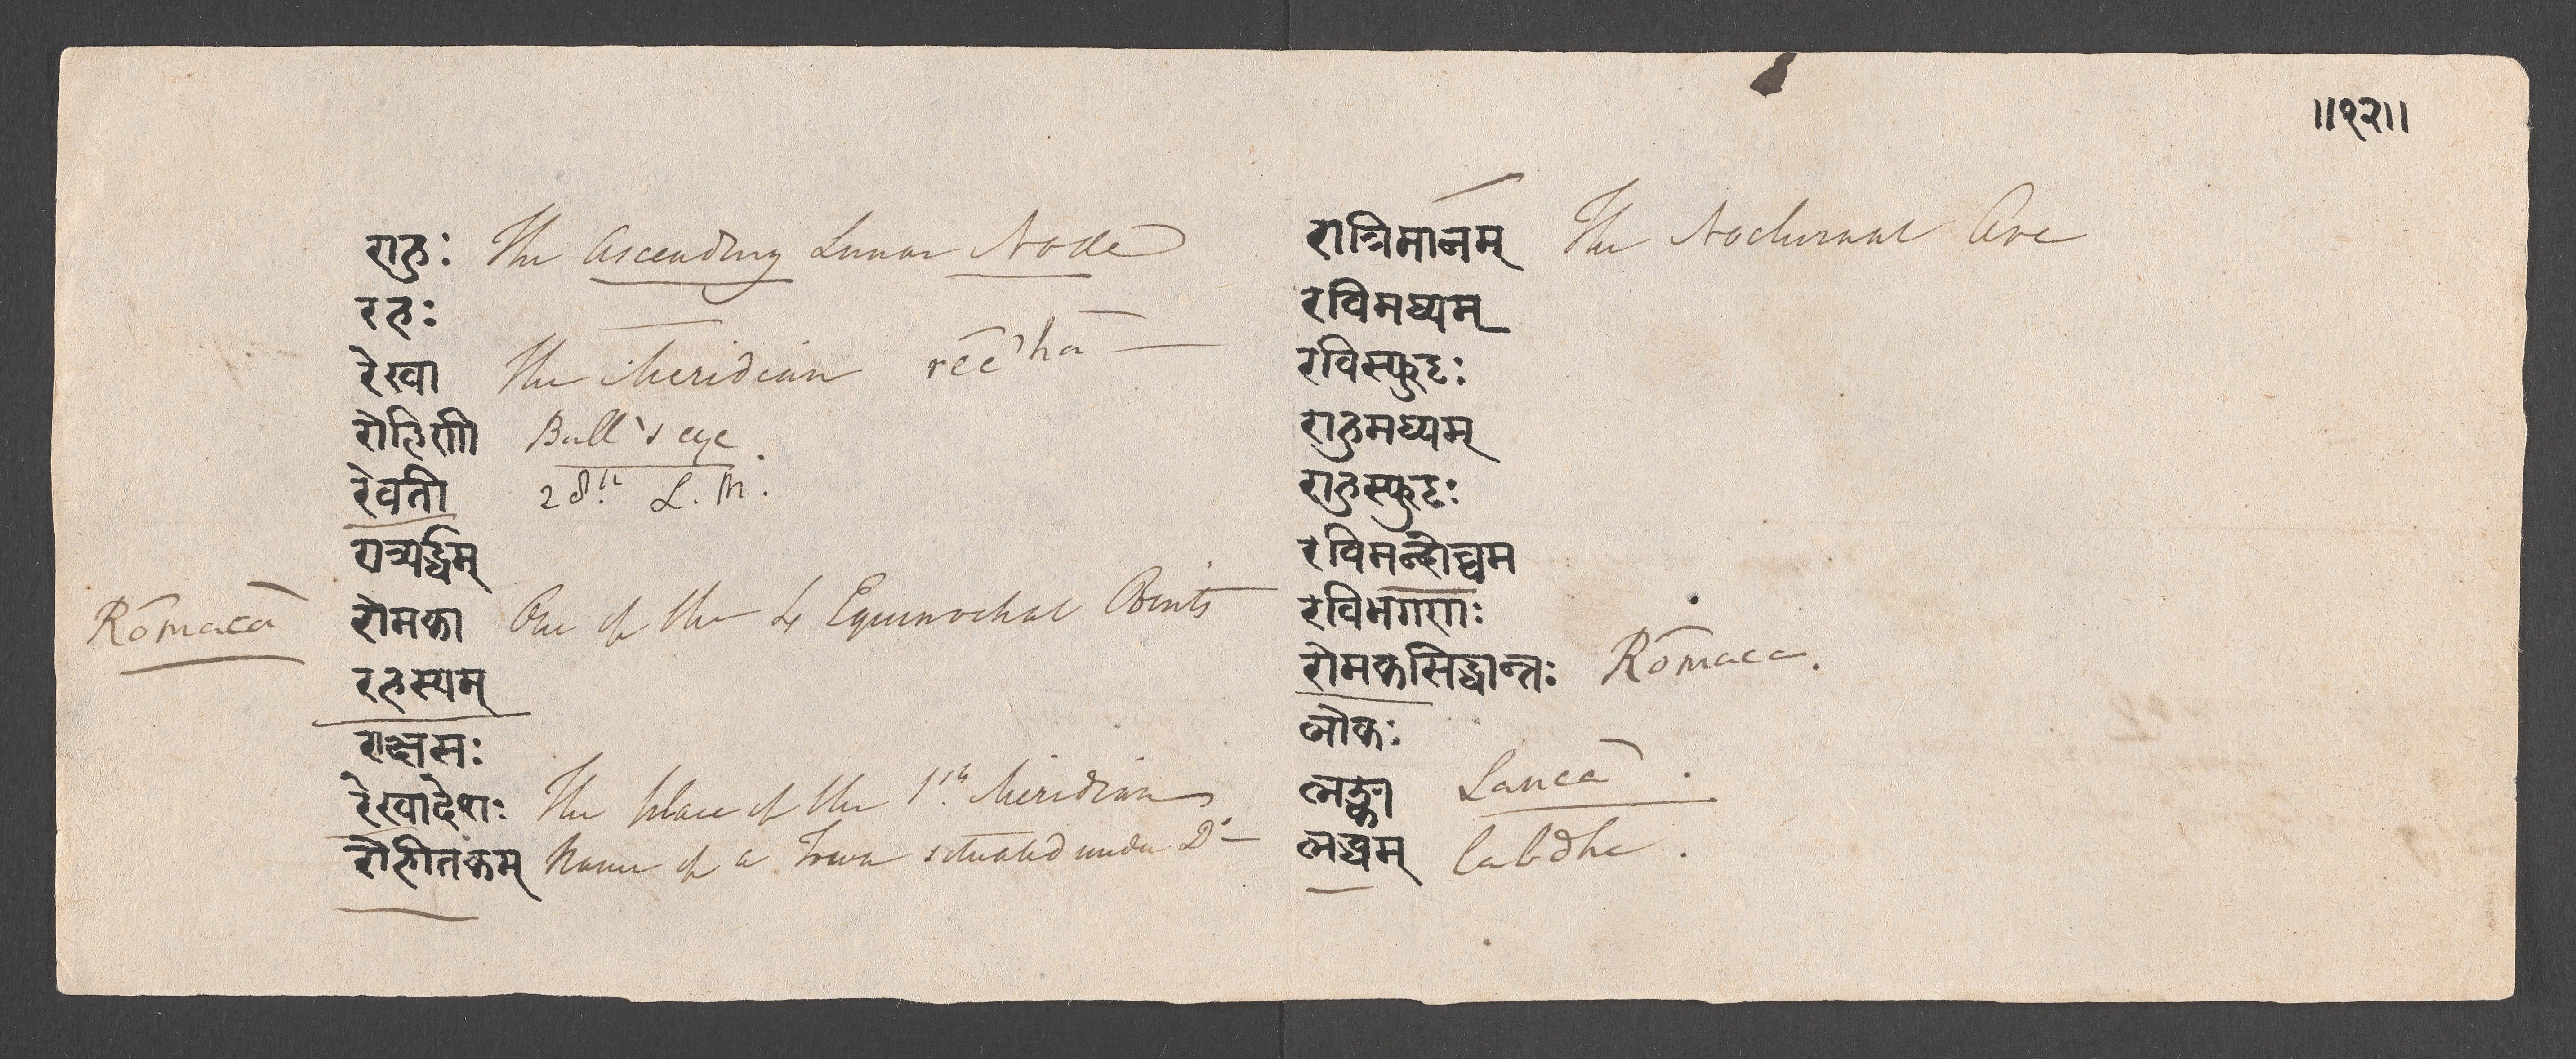 ॥१२॥
राहुः The Ascending Lunar Node
रहः
रेखा The Meridian rēc'hā
रोहिणी Bull's eye.
रेवती 28th L. M.
रात्र्यर्द्धम्
Rōmacā रोमका One of the 4 Equinoctial Points
रहस्यम्
राक्षसः
रेखादेशः The place of the 1st Meridian
रोहीतकम् Name of a Town situated under Do
रात्रिमानम् The Nocturnal Arc
रविमध्यम्
रविस्फुटः
राहुमध्यम्
राहुस्फुटः
रविमन्दोच्चम
रविभगणः
रोमकसिद्धान्तः Rōmaca.
लोकः
लङ्का Lancā.
लब्धम् labdha.